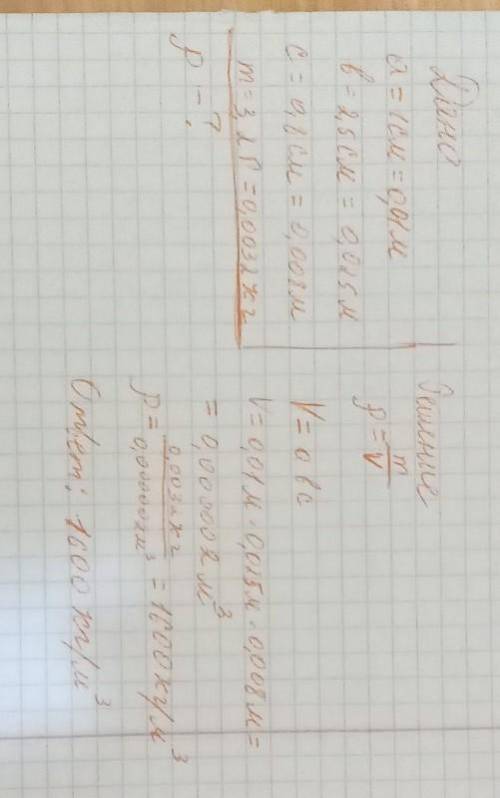 Дано
a = 1см = 0,01м
b = 2,5см = 0,025м
c = 0,8см = 0,008м
m = 3,2г = 0,0032кг
ρ - ?
Решение
ρ = m/V
V = abc
V = 0,01м · 0,025м · 0,008м =
= 0,000002м³
ρ = 0,0032кг/0,000002м³ = 1600кг/м³
Ответ: 1600 кг/м³